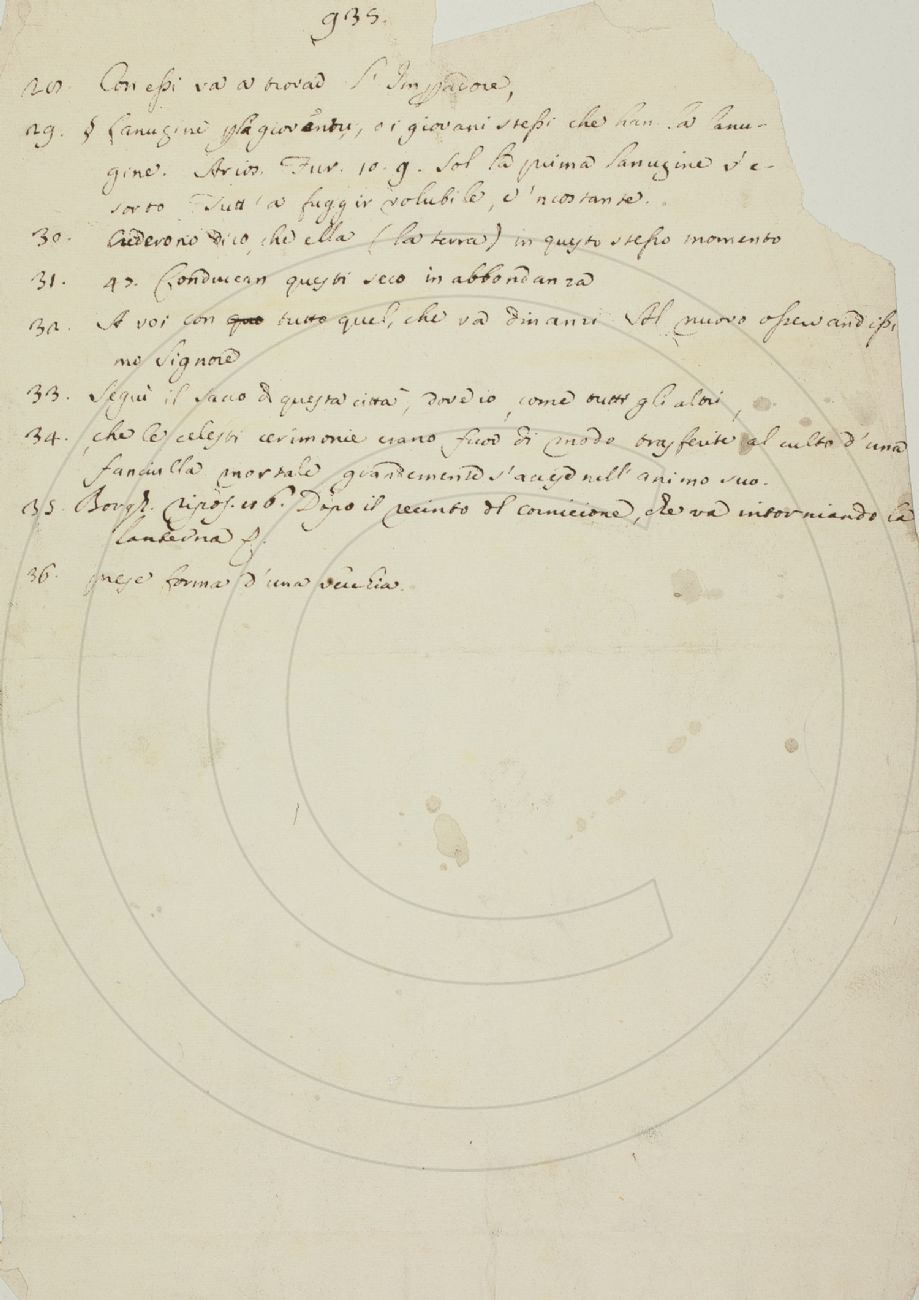 935.
28. Con essi va a trovar l'Impadore,
29. § Lanugine p la gioventu, o i giovani stessi che han la lanu-
gine. Arios. Fur. 10. 9. Sol la prima lanugine v'e-
sorto Tutt' a fuggir volubile, e 'ncostante.
30. Crederono dico, che ella (la terra) in questo stesso momento
31. 47. Conducean questi seco in abbondanza
32. A voi con quo tutto quel, che va dinanzi Al nuovo osservandissi
mo Signore
33. Seguì il sacco di questa città, dove io, come tutti gli altri,
34. che le celesti cerimonie erano fuor di modo trasferite al culto d'una
fanciulla mortale grandemente s'accese nell' animo suo.
35. Borgh. ripos. 116. Dopo il recinto del cornicione, che va intorniando la
lanterna
36. prese forma d'una vecchia.